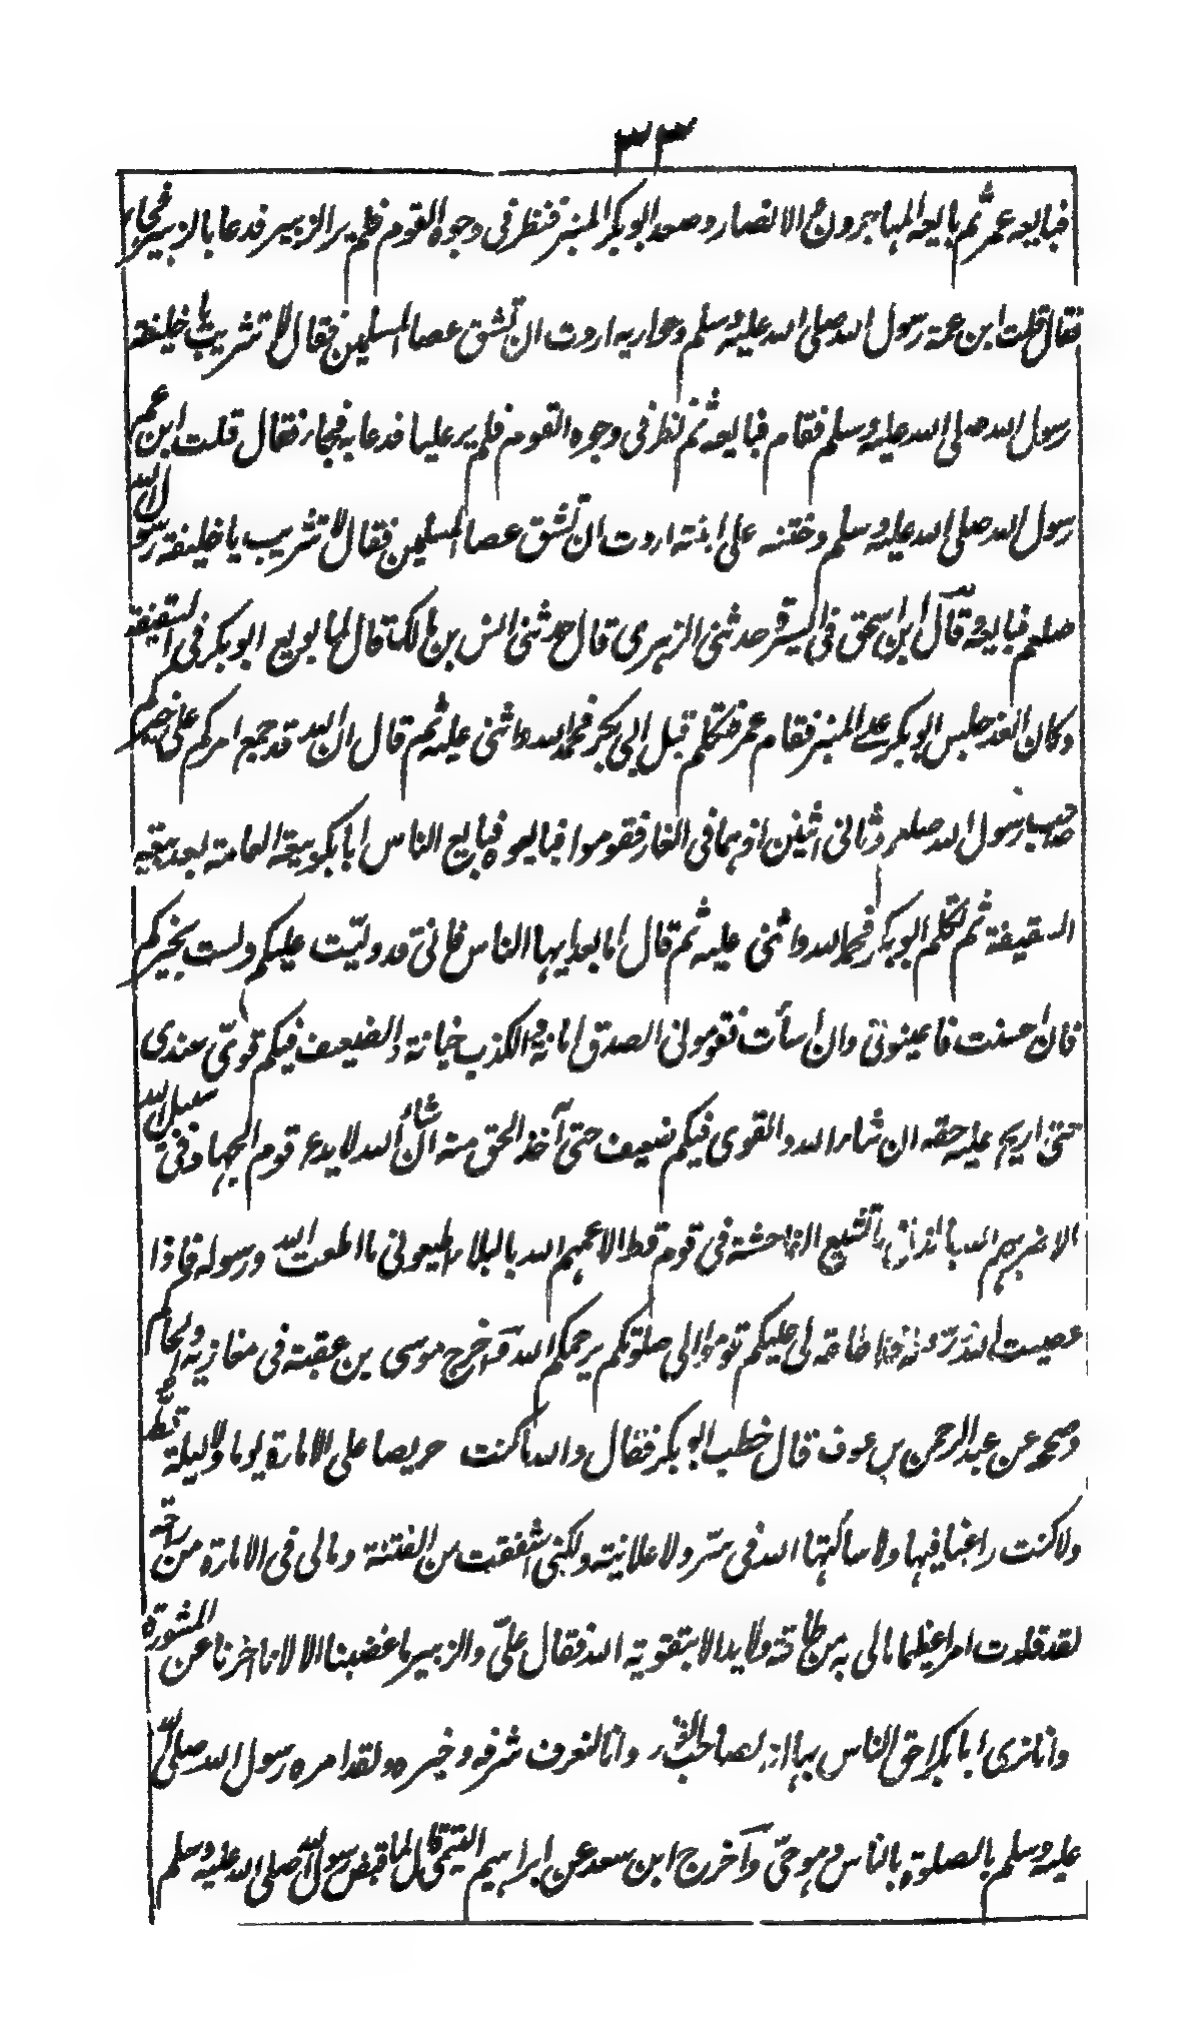 ٣٣
فبايعه عمر ثم بايعه المهاجرون والانصار وصعد ابو بكر المنبر فنظر في وجوه القوم فلم ير الزبير فدعا بالزبير فجاء
فقال قلت ابن عمة رسول الله صلى الله عليه وسلم وحواريه اردت ان تشق عصا المسلمين فقال لا تثريب يا خليفة
رسول الله صلى الله عليه وسلم فقام فبايعه ثم نظر في وجوه القوم فلم ير عليا فدعا به فجاء فقال قلت ابن عم
رسول الله صلى الله عليه وسلم وختنه على ابنته اردت ان تشق عصا المسلمين فقال لا تثريب يا خليفة رسول الله
صلعم فبايعه وقال ابن اسحق في السيرة حدثني الزهري قال حدثني انس بن مالك قال لما بويع ابو بكر في السقيفة
وكان الغد جلس ابو بكر على المنبر فقام عمر فتكلم قبل ابي بكر فحمد الله واثنى عليه ثم قال ان الله قد جمع امركم على خيركم
صاحب رسول الله صلعم وثاني اثنين اذ هما في الغار فقوموا فبايعوه فبايع الناس ابا بكر بيعة العامة بعد بيعة
السقيفة ثم تكلم ابو بكر فحمد الله واثنى عليه ثم قال اما بعد ايها الناس فاني قد وليت عليكم ولست بخيركم
فان احسنت فاعينوني وان أسأت فقوموني الصدق امانة والكذب خيانة والضعيف فيكم قويّ عندي
حتى اريح عليه حقه ان شاء الله والقوي فيكم ضعيف حتى آخذ الحق منه ان شاء الله لا يدع قوم الجهاد في سبيل الله
الا ضربهم الله بالذل ولا تشيع الفاحشة في قوم قط الا عمهم الله بالبلاء اطيعوني ما اطعت الله ورسوله فاذا
عصيت الله ورسوله فلا طاعة لي عليكم قوموا الى صلوتكم يرحمكم الله واخرج موسى بن عقبة في مغازيه والحاكم
وصححه عن عبد الرحمن بن عوف قال خطب ابو بكر فقال والله ما كنت حريصا على الامارة يوما ولا ليلة قط
ولا كنت راغبا فيها ولا سألتها الله في سرّ ولا علانية ولكني اشفقت من الفتنة وما لي في الامارة من راحة
لقد قلدت امرا عظيما ما لي به من طاقة ولا يد الا بتقوية الله فقال عليّ والزبير ما غضبنا الا لانا اخرنا عن المشورة
وانا نرى ابا بكر احق الناس بها انه لصاحب الغار وانا لنعرف شرفه وخيره ولقد امره رسول الله صلى الله
عليه وسلم بالصلوة بالناس وهو حيّ وآخرج ابن سعد عن ابراهيم التيمي قال لما قبض رسول الله صلى الله عليه وسلم